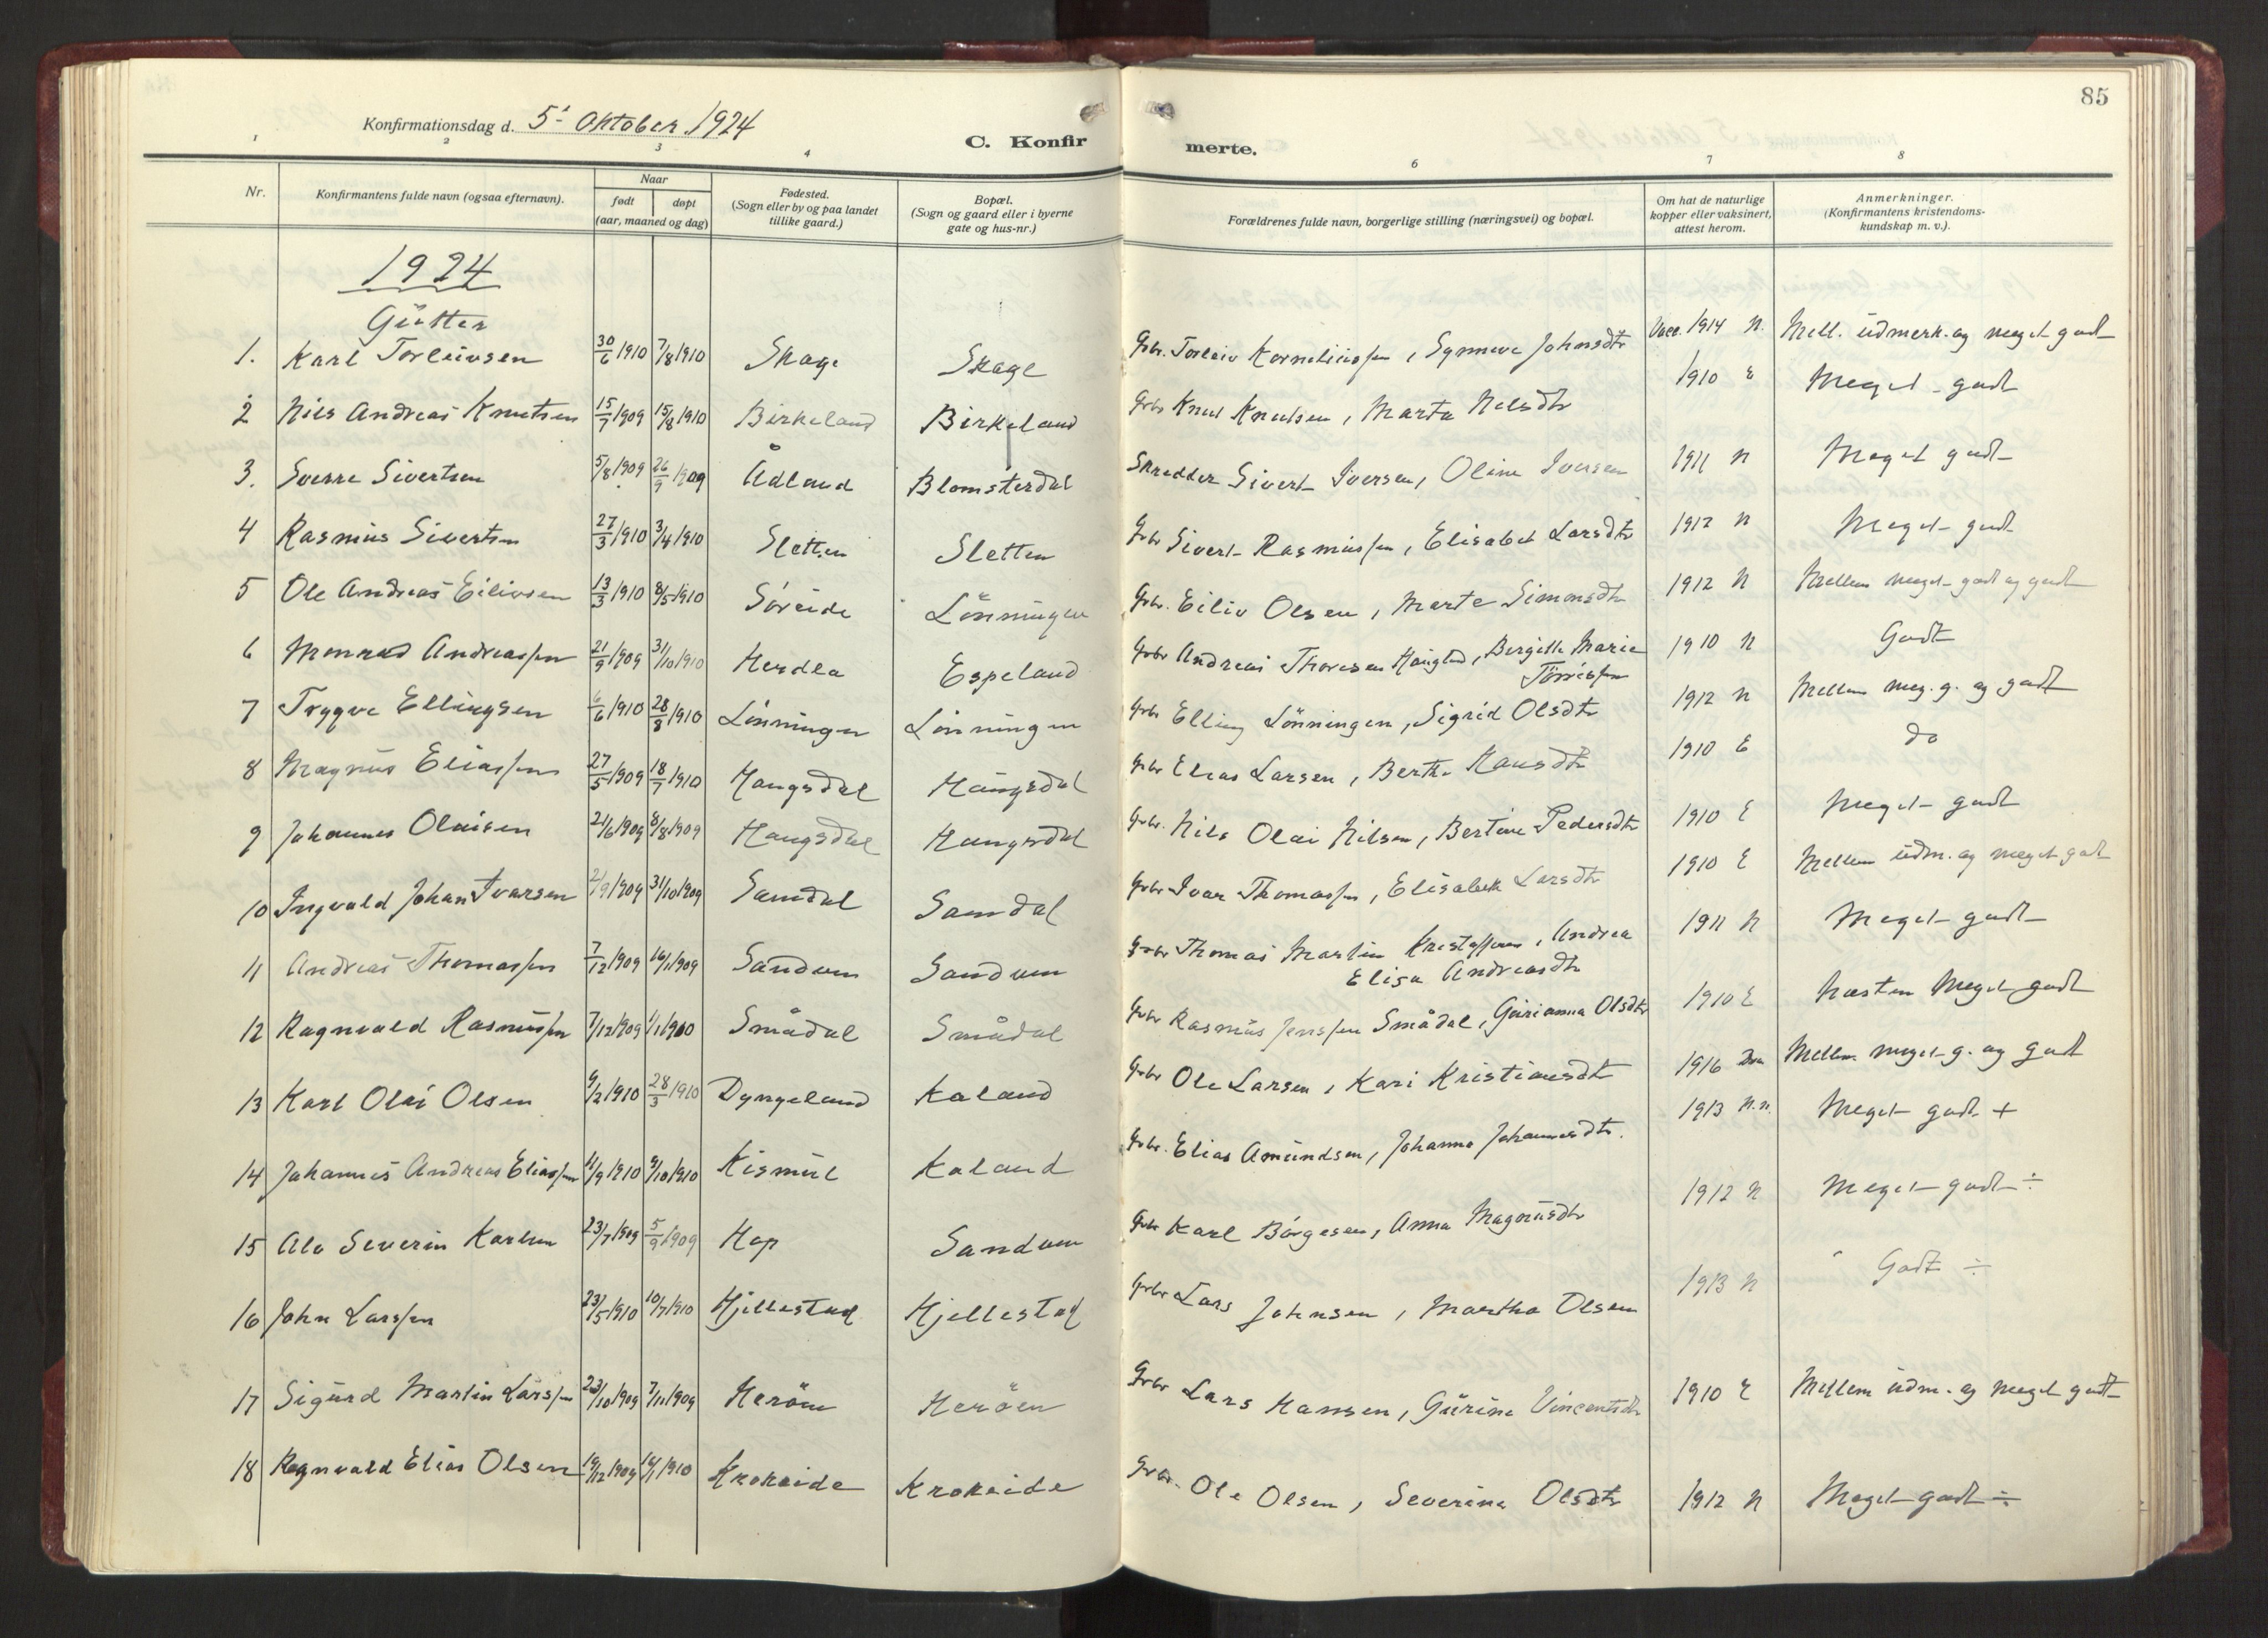 85
Konfirmationsdag d. 5' Oktober 1924
C. Konfirmerte.
1 2 3 4 6 7 8
Nr. | Konfirmantens fulde navn (ogsaa efternavn). | Naar født døpt (aar, maaned og dag) | Fødested. (Sogn eller by og paa landet tillike gaard.) | Bopæl. (Sogn og gaard eller i byerne gate og hus-nr.) | Forældrenes fulde navn, borgerlige stilling (næringsvei) og bopæl. | Om hat de naturlige kopper eller vaksinert, attest herom. | Anmerkninger. (Konfirmantens kristendomskundskap m. v.).
1924
Gutter
1. Karl Torleivsen 30/6 1910 7/8 1910 Skage Skage Gbr. Torleiv Korneliussen, Synneve Johnsdtr Vacc. 1914 N. Mell. udmerk. og meget godt
2 Nils Andreas Knutsen 15/7 1909 15/8 1910 Birkeland Birkeland Gbr Knut Knutsen, Marta Nelsdtr 1910 E Meget godt
3. Sverre Sivertsen 5/8 1909 26/9 1909 Ådland Blomsterdal Skredder Sivert Iversen, Oline Iversen 1911 N Meget godt
4 Rasmus Sivertsen 27/3 1910 3/4 1910 Sletten Sletten Gbr Sivert Rasmussen, Elisabet Larsdtr 1912 N Meget godt
5 Ole Andreas Eilivsen 13/3 1910 8/5 1910 Søreide Lönningen Gbr. Eiliv Olsen, Marte Simonsdtr 1912 N Mellem meget godt og godt
6 Monrad Andreassen 21/9 1909 31/10 1910 Herdla Espeland Gbr Andreas Thoresen Haugland, Bergitte Marie Törrissen 1910 N Godt
7 Trygve Ellingsen 6/6 1910 28/8 1910 Lönningen Lönningen Gbr Elling Lönningen, Sigrid Olsdtr 1912 N Mellem meg. g. og godt
8 Magnus Eliassen 27/5 1909 18/7 1910 Haugsdal Haugsdal Gbr Elias Larsen, Berthe Hansdtr 1910 E do
9 Johannes Olaisen 21/6 1909 8/8 1909 Haugsdal Haugsdal Gbr. Nils Olai Nilsen, Bertine Pedersdtr 1910 E Meget godt
10 Ingvald Johan Ivarsen 2/9 1909 31/10 1909 Samdal Samdal Gbr Ivar Thomassen, Elisabeth Larsdtr 1910 E Mellem udm. og meget godt
11 Andreas Thomassen 7/12 1909 16/1 1909 Sandven Sandven Gbr Thomas Martin Kristoffersen, Andrea Elisa Andreasdtr 1911 N Meget godt
12 Ragnvald Rasmussen 7/12 1909 1/1 1910 Smådal Smådal Gbr Rasmus Jenssen Smådal, Gurianna Olsdtr 1910 E Næsten Meget godt
13 Karl Olai Olsen 9/2 1910 28/3 1910 Dyngeland Kaland Gbr Ole Larsen, Kari Kristiansdtr 1916 Mellem meget g. og godt
14 Johannes Andreas Eliassen 11/9 1910 9/10 1910 Kismul Kaland Gbr. Elias Amundsen, Johanna Johannesdtr. 1913 N.N. Meget godt +
15 Alv Severin Karlsen 23/7 1909 5/9 1909 Hop Sandven Gbr Karl Börgesen, Anna Magnusdtr 1912 N Meget godt ÷
16 John Larssen 23/5 1910 10/7 1910 Hjellestad Hjellestad Gbr Lars Johnsen, Martha Olsen 1913 N Godt ÷
17 Sigurd Martin Larssen 23/10 1909 7/11 1909 Heröen Heröen Gbr Lars Hansen, Gurine Vincentsdtr 1910 E Mellem udm. og meget godt
18 Ragnvald Elias Olsen 19/12 1909 16/1 1910 Krokeide Krokeide Gbr. Ole Olsen, Severine Olsdtr 1912 N Meget godt ÷